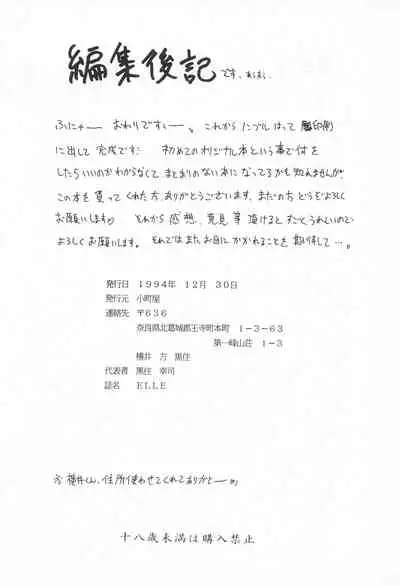 編集後記です。
ふにゃー おわりですー。これからノンブルはって印刷
に出して完成です。初めてのオリジナル本という事で何を
したらいいのかわからなくてまとまりのない本になってるかも知れませんが、
この本を買ってくれた方、ありがとうございます、まだの方どうぞよろしく
お願いします。それから感想、意見等頂けるとすごくうれしいので
よろしくお願いします。それではまたお目にかかれることを期待して…。
発行日 1994年 12月 30日
発行元 小町屋
連絡先 〒636
奈良県北葛城郡王寺町本町 1-3-63
第一峰山荘 1-3
横井 方 黒住
代表者 黒住 幸司
誌名 ELLE
横井くん、住所使わせてくれてありがとー
十八歳未満は購入禁止